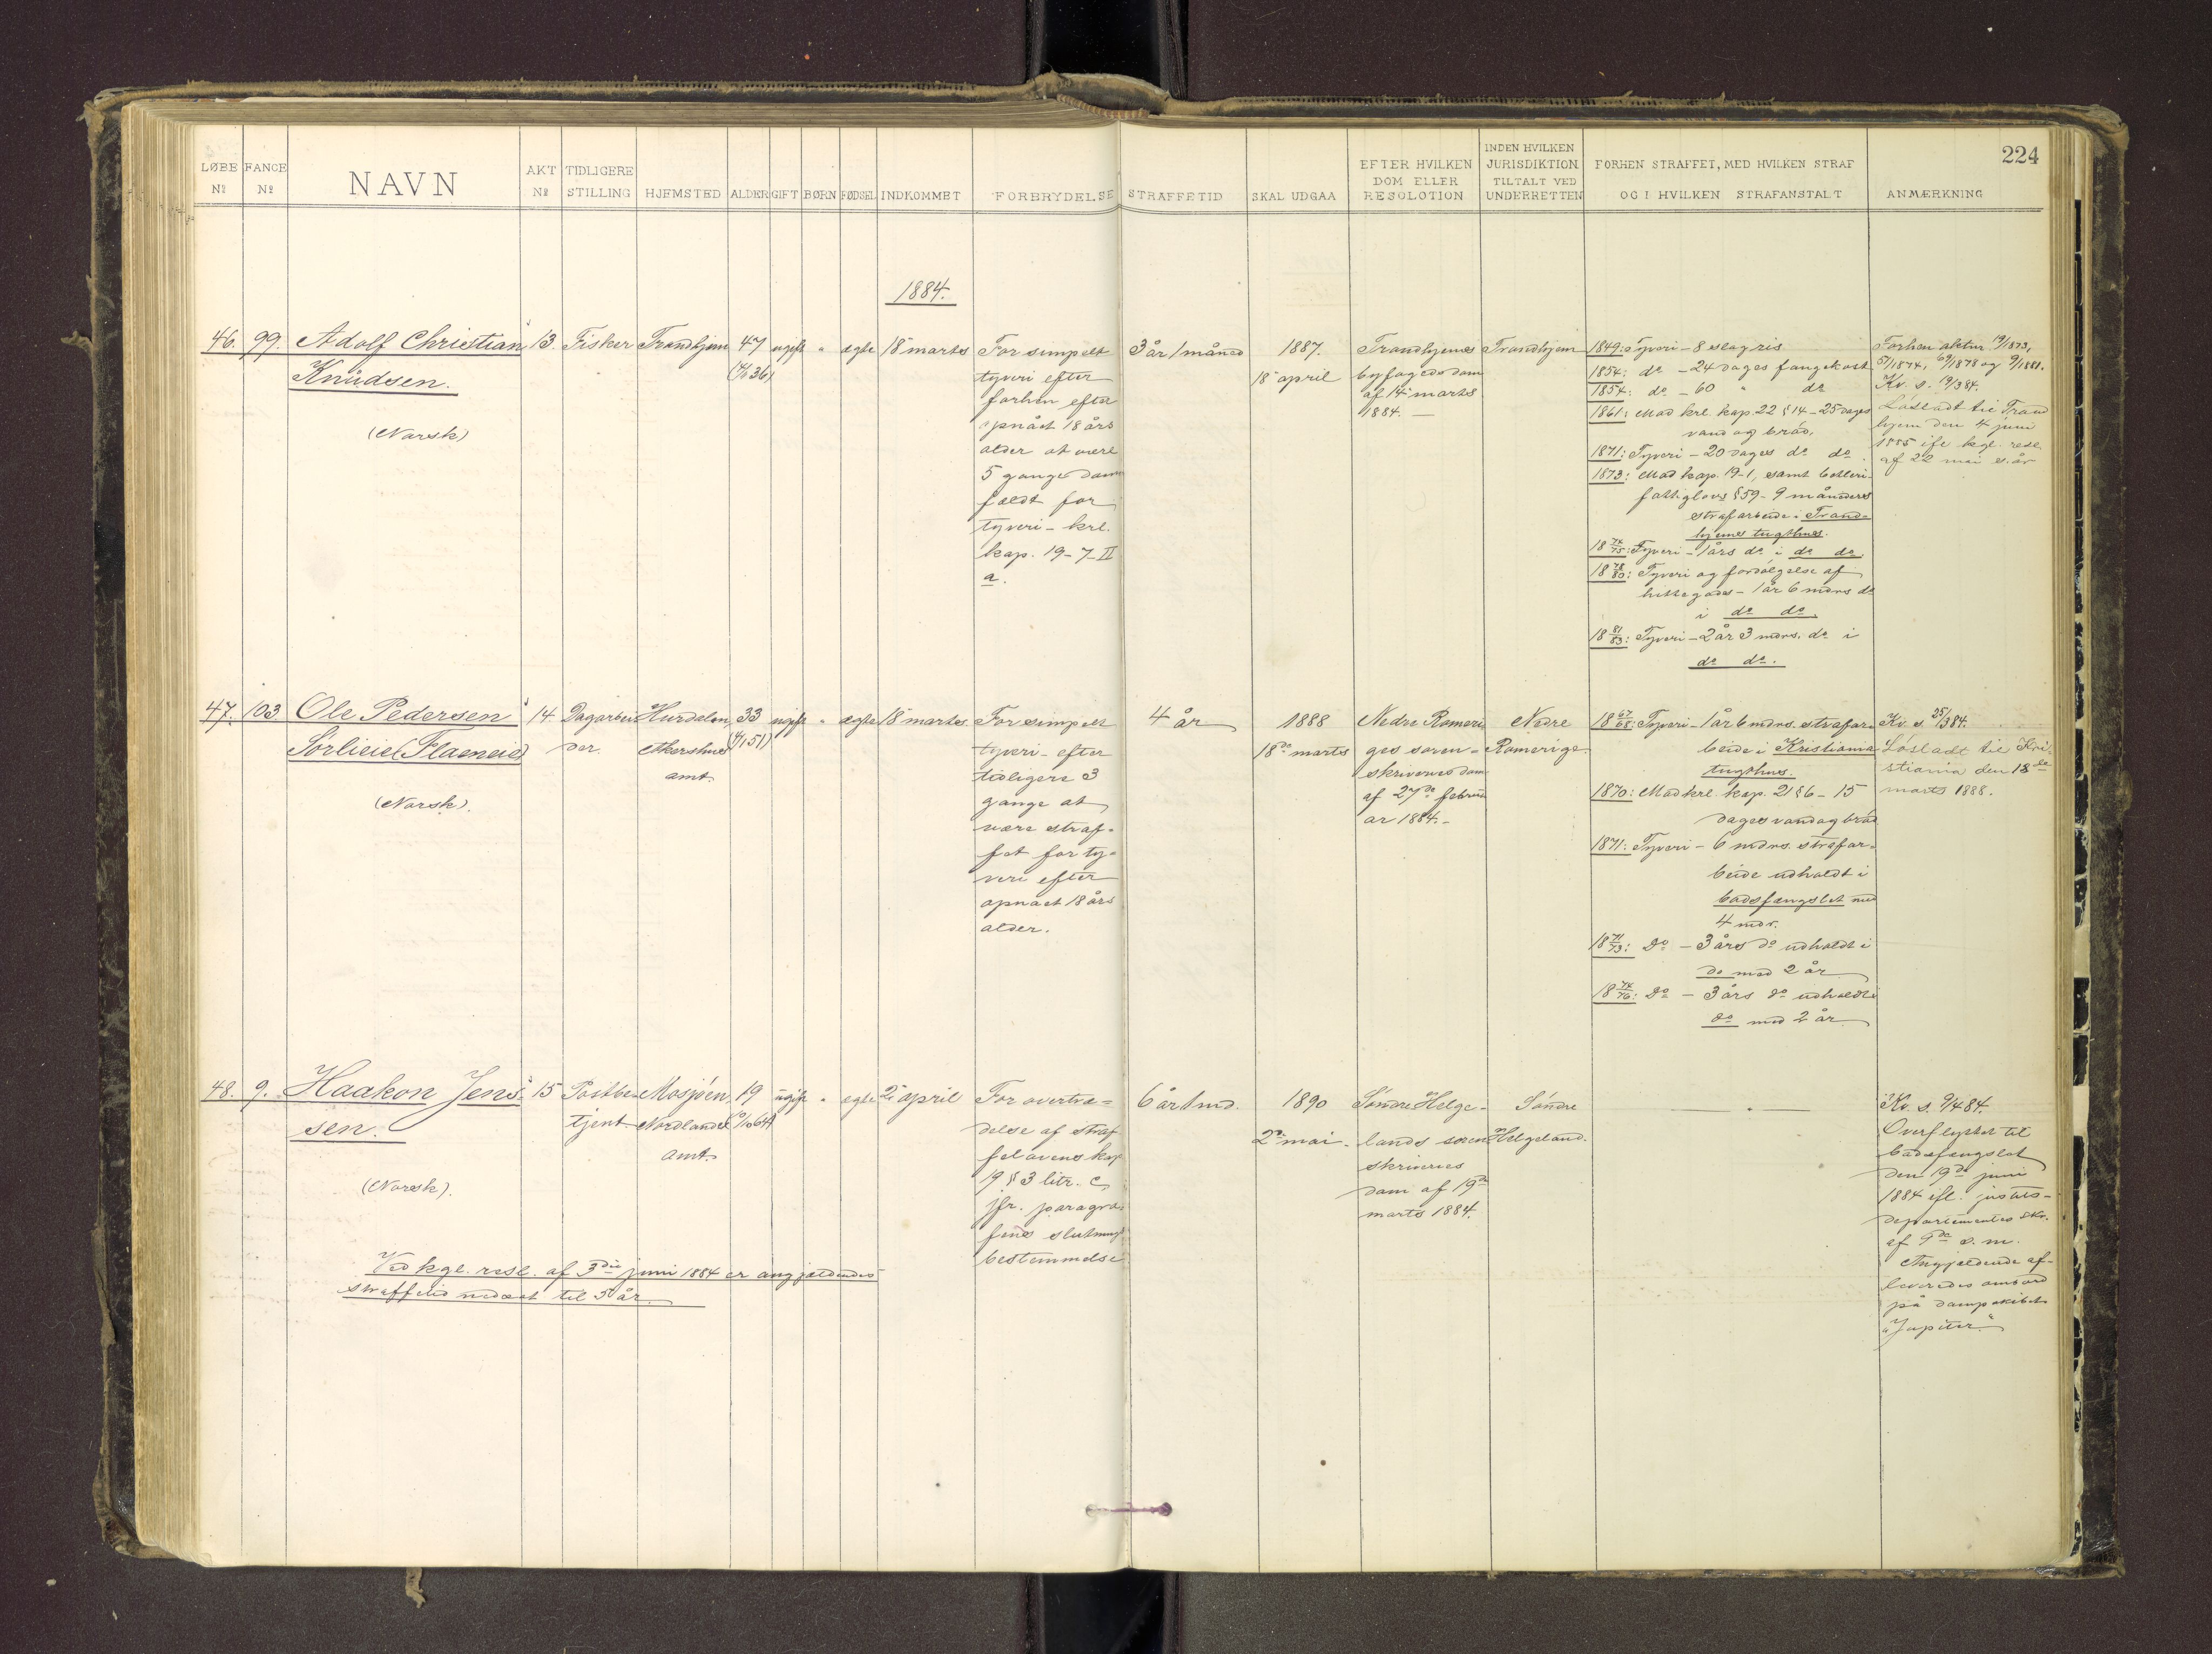 224
LØBE No
FANGE No
NAVN
AKT No
TIDLIGERE STILLING
HJEMSTED
ALDER
GIFT
BØRN
FØDSEL
INDKOMMET
FORBRYDELSE
STRAFFETID
SKAL UDGAA
EFTER HVILKEN DOM ELLER RESOLOTION
INDEN HVILKEN JURISDIKTION TILTALT VED UNDERRETTEN
FORHEN STRAFFET, MED HVILKEN STRAF
OG I HVILKEN STRAFANSTALT
ANMÆRKNING
1884.
46.
99.
Adolf Christian
Knudsen.
(Norsk)
13.
Fisker
Trondhjem
47
ugift
"
ægte
18 marts
For simpelt
tyveri efter
forhen efter
opnået 18 års
alder at være
5 gange dom
fældt for
tyveri - krl.
kap. 19-7-II
a.
3 år 1 måned
1887.
18 april
Trondhjems
byfogeds dom
af 14 marts
1884. —
Trondhjem
1849: Tyveri - 8 slag ris.
1854: do - 24 dages fangekost
1854: do - 60 " do
1861: Mod krl. kap. 22 § 14 - 25 dages
vand og brød.
1871: Tyveri - 20 dages do do.
1873: Mod kap. 19-1, samt betleri
fattiglovs § 59 - 9 måneders
strafarbeide i Trond-
hjems tugthus.
18 74/75: Tyveri - 1 års do i do do.
18 78/80: Tyveri og fordølgelse af
hittegods - 1 år 6 mdrs do
i do do.
18 81/83: Tyveri - 2 år 3 mdrs. do i
do do.
Forhen aktnr 19/1873,
51/1874, 69/1878 og 9/1881.
Kv. s. 19/3 84.
Løsladt til Trond
hjem den 4 juni
1885 ifl. kgl. resl.
af 22 mai s. år
47.
103
Ole Pedersen
Sørlieie (Flaeneie)
(Norsk).
14
Dagarbei
der.
Hurdalen,
Akershus
amt.
33
ugift
"
ægte
18 marts.
For simpelt
tyveri - efter
tidligere 3
gange at
være straf-
fet for ty-
veri efter
opnået 18 års
alder.
4 år
1888
18de marts
Nedre Romeri
ges soren-
skriveres dom
af 27de febru
ar 1884. -
Nedre
Romerige.
18 67/68: Tyveri - 1 år 6 mdrs. strafar-
beide i Kristiania
tugthus.
1870: Mod krl. kap. 21 § 6 - 15
dages vand og brød
1871: Tyveri - 6 mdrs. strafar-
beide udholdt i
bodsfængslet med
4 mdr.
18 71/73: do - 3 års do udholdt i
do med 2 år
18 74/76: do - 3 års do udholdt i
do med 2 år.
Kv. s. 25/3 84.
Løsladt til Kri-
stiania den 18de
marts 1888.
48.
9.
Haakon Jens-
sen.
(Norsk).
15
Postbe-
tjent
Mosjøen,
Nordlands
amt.
19
ugift
"
ægte
2 april
For overtræ-
delse af straf
felovens kap
19 § 3 litr. c,
jfr. paragra-
fens slutnings
bestemmelse
6 år 1 md.
1890
2den mai.
Søndre Helge-
lands soren
skriveres
dom af 19de
marts 1884.
Søndre
Helgeland.
— " —
Kv. s. 9/4 84.
Overflyttet til
bodsfængslet
den 19de juni
1884 ifl. justits-
departementets skr.
af 9de s. m.
Angjældende af-
leveredes ombord
på dampskibet
"Jupiter."
Ved kgl. resl. af 3die juni 1884 er angjældendes
straffetid nedsat til 5 år.